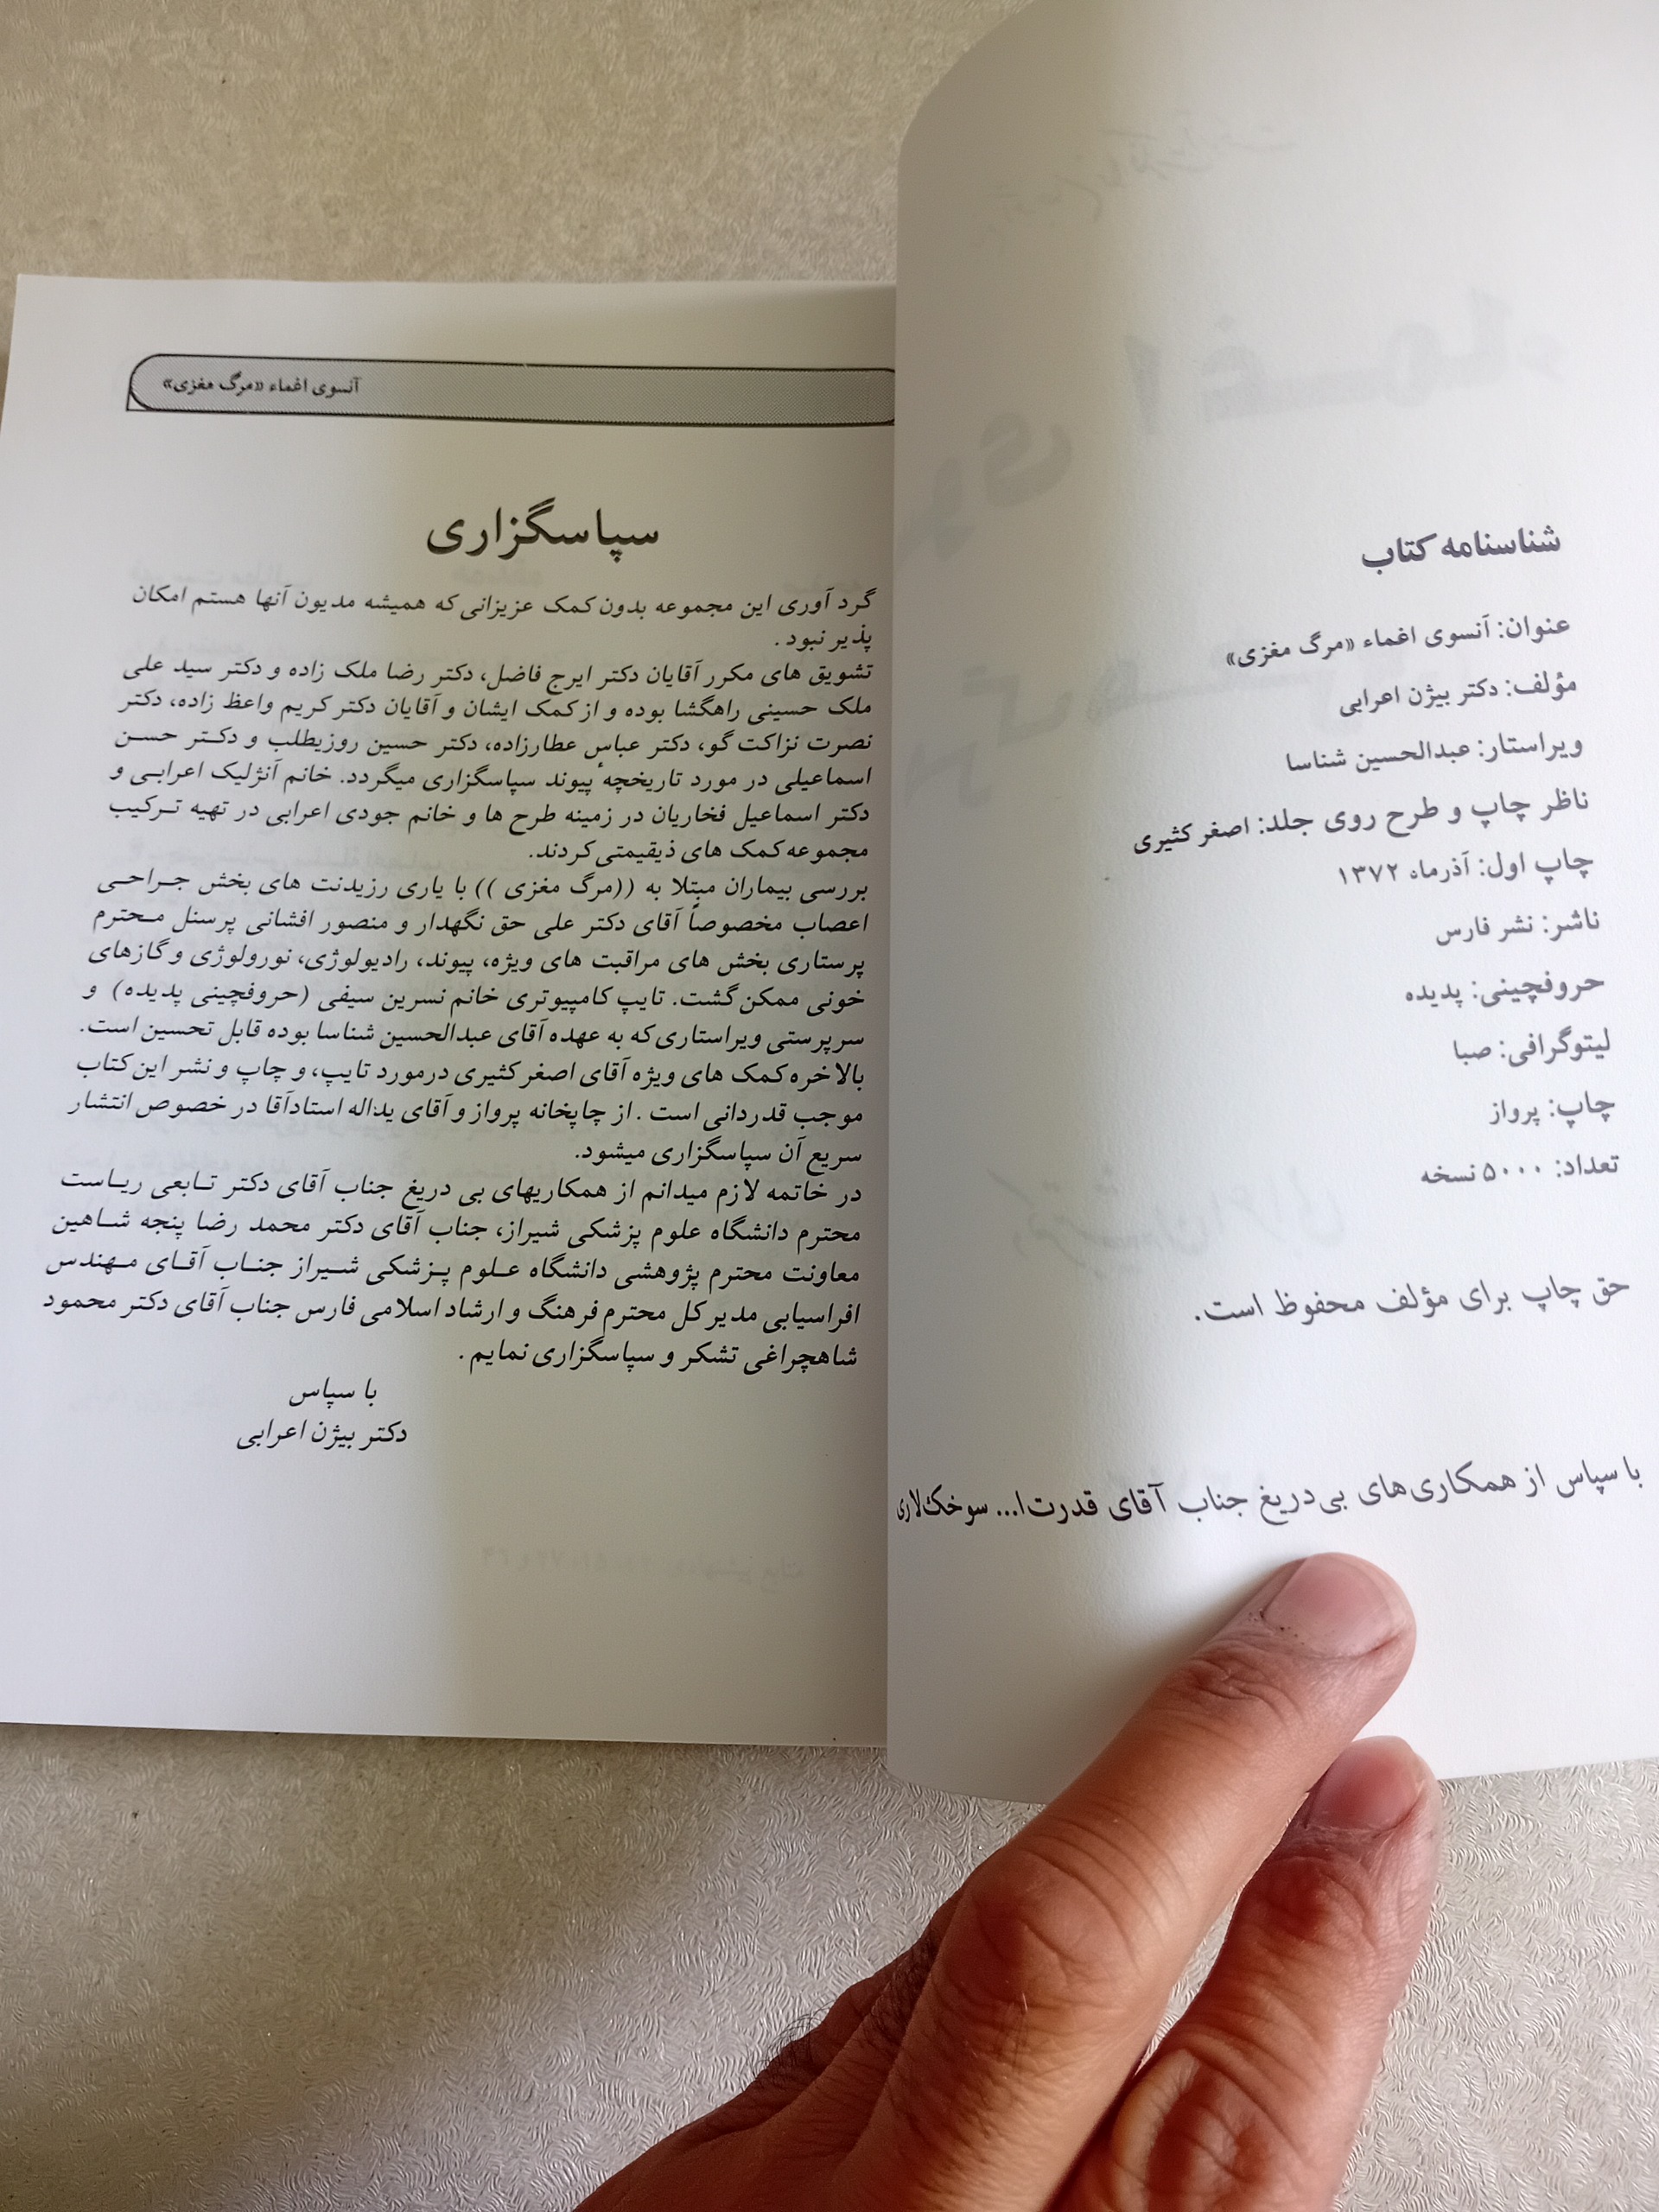 شناسنامه کتاب
عنوان: آنسوی اغماء «مرگ مغزی»
مؤلف: دکتر بیژن اعرابی
ویراستار: عبدالحسین شناسا
ناظر چاپ و طرح روی جلد: اصغر کثیری
چاپ اول: آذرماه ۱۳۷۲
ناشر: نشر فارس
حروفچینی: پدیده
لیتوگرافی: صبا
چاپ: پرواز
تعداد: ۵۰۰۰ نسخه
حق چاپ برای مؤلف محفوظ است.
با سپاس از همکاری‌های بی‌دریغ جناب آقای قدرت‌ا... سوخک‌لاری
آنسوی اغماء «مرگ مغزی»
سپاسگزاری
گرد آوری این مجموعه بدون کمک عزیزانی که همیشه مدیون آنها هستم امکان
پذیر نبود .
تشویق های مکرر آقایان دکتر ایرج فاضل، دکتر رضا ملک زاده و دکتر سید علی
ملک حسینی راهگشا بوده و از کمک ایشان و آقایان دکتر کریم واعظ زاده، دکتر
نصرت نزاکت گو، دکتر عباس عطارزاده، دکتر حسین روزیطلب و دکتر حسن
اسماعیلی در مورد تاریخچهٔ پیوند سپاسگزاری میگردد. خانم آنژلیک اعرابی و
دکتر اسماعیل فخاریان در زمینه طرح ها و خانم جودی اعرابی در تهیه ترکیب
مجموعه کمک های ذیقیمتی کردند.
بررسی بیماران مبتلا به ((مرگ مغزی )) با یاری رزیدنت های بخش جراحی
اعصاب مخصوصاً آقای دکتر علی حق نگهدار و منصور افشانی پرسنل محترم
پرستاری بخش های مراقبت های ویژه، پیوند، رادیولوژی، نورولوژی و گازهای
خونی ممکن گشت. تایپ کامپیوتری خانم نسرین سیفی (حروفچینی پدیده) و
سرپرستی ویراستاری که به عهده آقای عبدالحسین شناسا بوده قابل تحسین است.
بالاخره کمک های ویژه آقای اصغر کثیری درمورد تایپ، و چاپ و نشر این کتاب
موجب قدردانی است . از چاپخانه پرواز و آقای یداله استادآقا در خصوص انتشار
سریع آن سپاسگزاری میشود.
در خاتمه لازم میدانم از همکاریهای بی دریغ جناب آقای دکتر تابعی ریاست
محترم دانشگاه علوم پزشکی شیراز، جناب آقای دکتر محمد رضا پنجه شاهین
معاونت محترم پژوهشی دانشگاه علوم پزشکی شیراز جناب آقای مهندس
افراسیابی مدیر کل محترم فرهنگ و ارشاد اسلامی فارس جناب آقای دکتر محمود
شاهچراغی تشکر و سپاسگزاری نمایم .
با سپاس
دکتر بیژن اعرابی